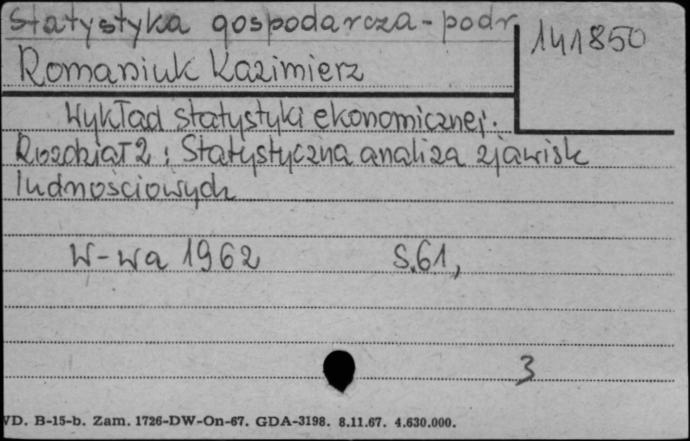 Statystyka gospodarcza - podr
141850
Romaniuk Kazimierz
Wykład statystyki ekonomicznej.
Rozdział 2: Statystyczna analiza zjawisk
ludnościowych
W-wa 1962 S.61,
3
VD. B-15-b. Zam. 1726-DW-On-67. GDA-3198. 8.11.67. 4.630.000.